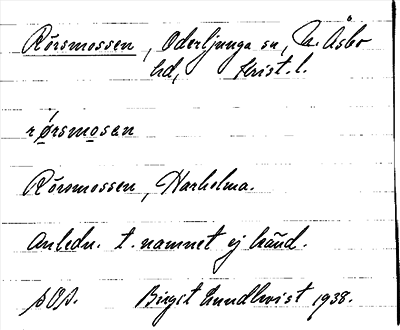 Rörsmossen, Oderljunga sn, N. Åsbo
hd, Krist. l.
rǿrsmosen
Rörsmossen, Harholma.
Anledn. t. namnet ej känd.
Birgit Lundkvist 1938.